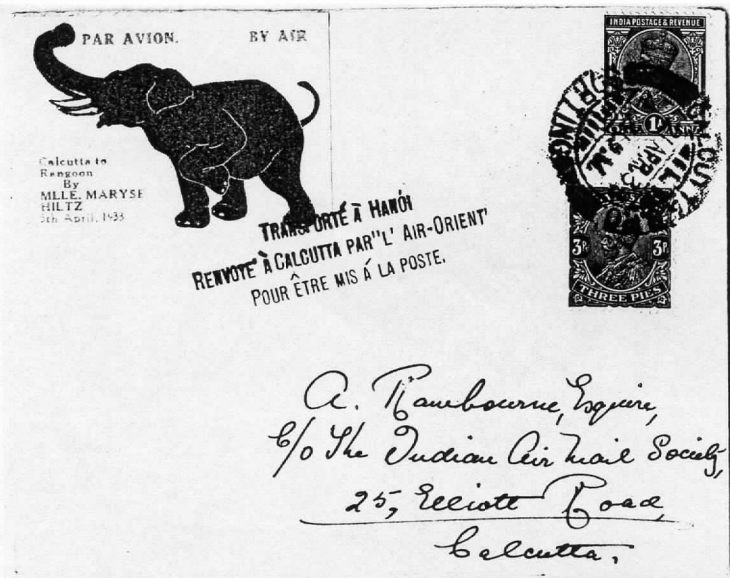 PAR AVION. BY AIR
Calcutta to
Rangoon
By
MLLE. MARYSE
HILTZ
5th April, 1933
TRANSPORTÉ À HANÓI
RENVOYÉ À CALCUTTA PAR "L' AIR-ORIENT'
POUR ÊTRE MIS Á LA POSTE.
INDIA POSTAGE & REVENUE
1A
APR.
3P 3P
THREE PIES
A. Rambourne, Esquire,
C/o The Indian Air Mail Society,
25, Elliott Road,
Calcutta.